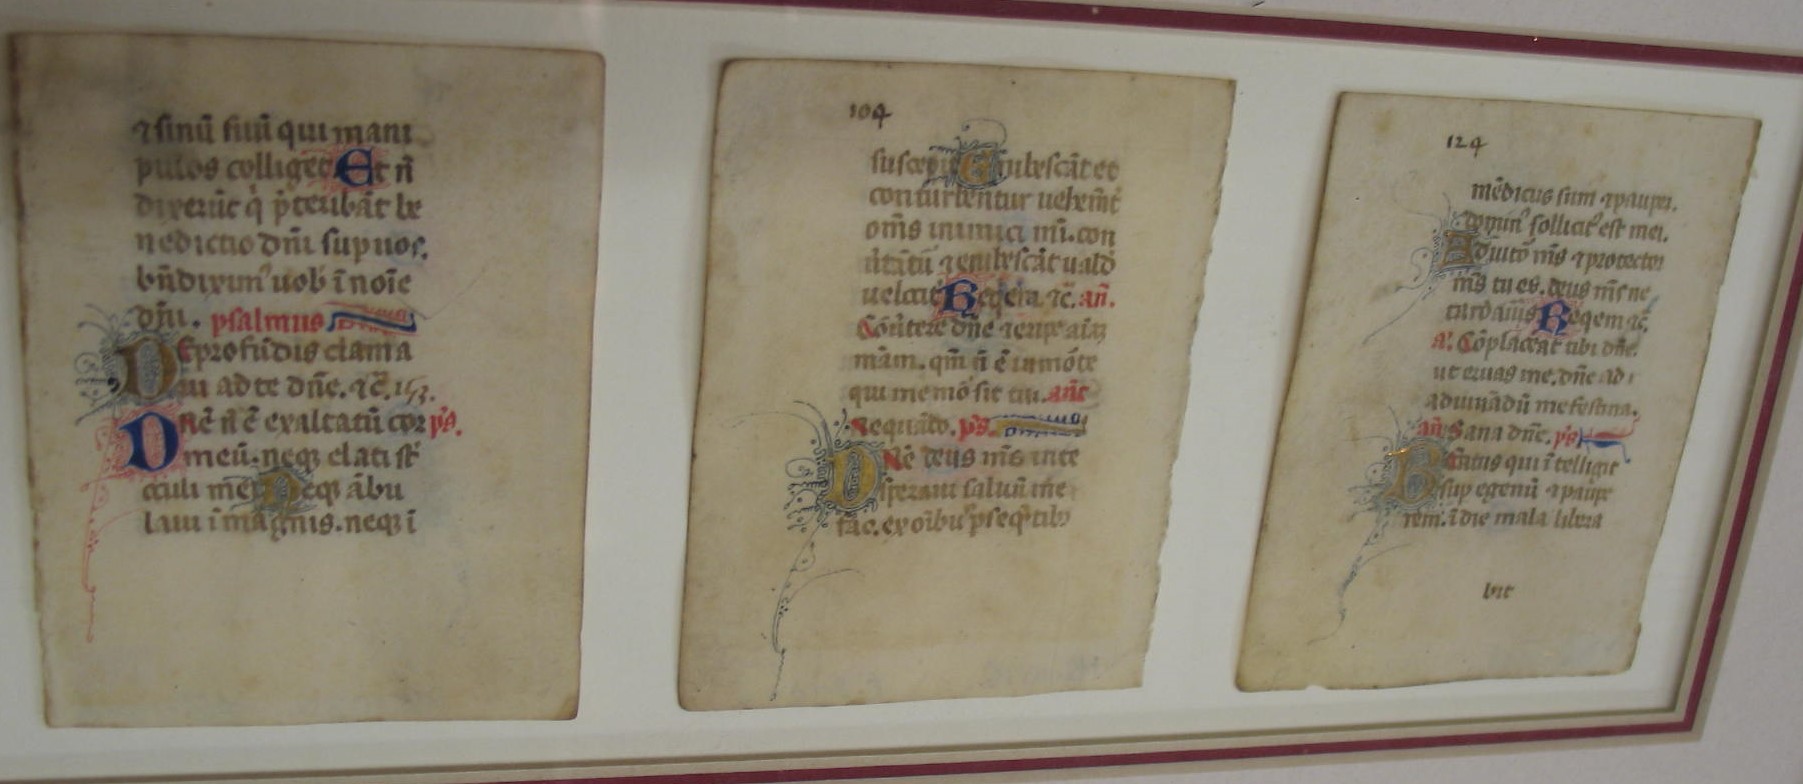 ⁊ sinū suū qui mani
pulos colliget Et n̄
dixerūt q̇ p̄teribāt be
nedictio dn̄i sup uos.
bn̄dixim᷒ uob̄ ī noīe
dn̄i. psalmus
De profūdis clama
ui ad te dn̄e. ⁊c̄.
Dn̄e n̄ ē exaltatū cor ps̄.
meū. neq̄ elati st̄
oculi mei Neq̄ ābu
laui ī magnis. neq̄ ī
104
suscepit Erubescāt et
conturbentur uehem̄t
om̄s inimici mī. con
⁊ erubescāt uald
uelocit Reqem ⁊c̄. an̄.
Cōūtere dn̄e ⁊ eripe aīaȝ
mām. qm̄ n̄ ē in mōte
qui memor sit tui. an̄t
Nequādo. ps̄.
Dn̄e deus m̄s in te
speraui saluū me
fac. ex oībus pseq̄tib᷒
124
mēdicus sum ⁊ pauper.
domin᷒ sollicit᷒ est mei.
Adiutor m̄s ⁊ protector
m̄s tu es. deus m̄s ne
tardauis Reqem ⁊c̄.
a. Cōplaceat tibi dn̄e.
ut eruas me. dn̄e ad
adiuuādū me festina.
an̄ Sana dn̄e. ps̄
Beatus qui ītelligit
sup egenū ⁊ paupe
rem. ī die mala libera
bit